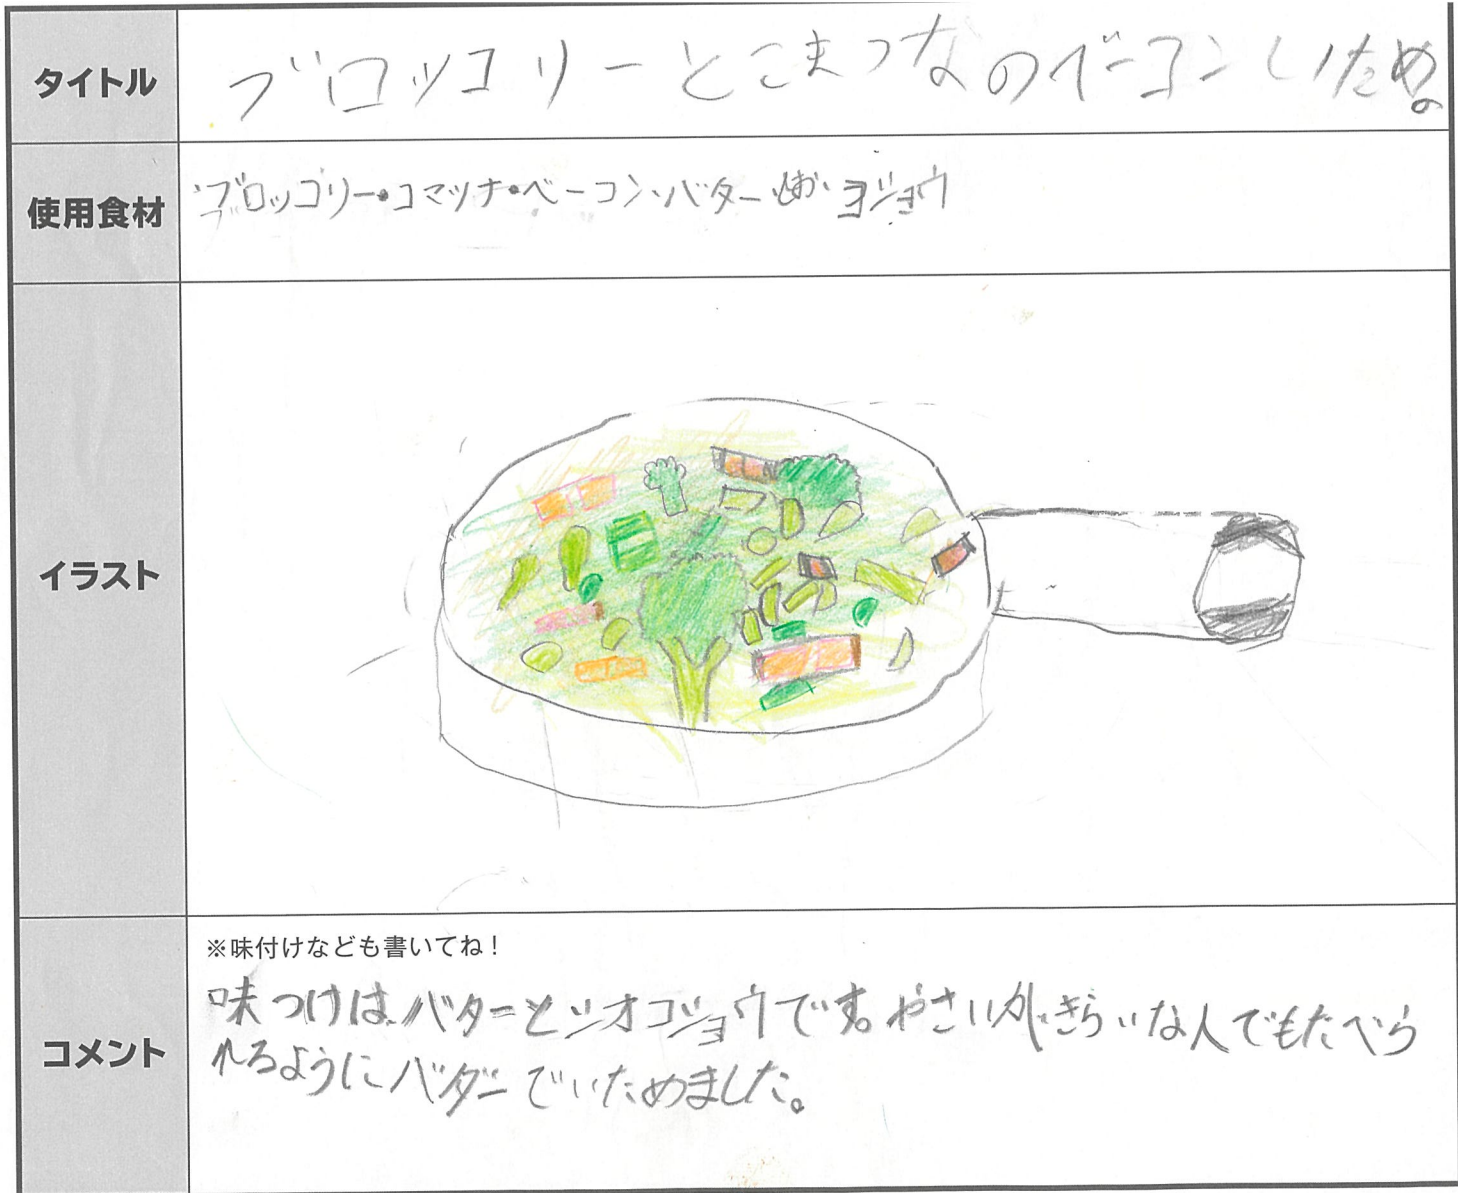 タイトル
ブロッコリーとこまつなのベーコンいため。
使用食材
ブロッコリー・コマツナ・ベーコン、バター
イラスト
コメント
※味付けなども書いてね！
味つけはバターとシオコショウです。やさいがきらいな人でもたべら
れるようにバターでいためました。